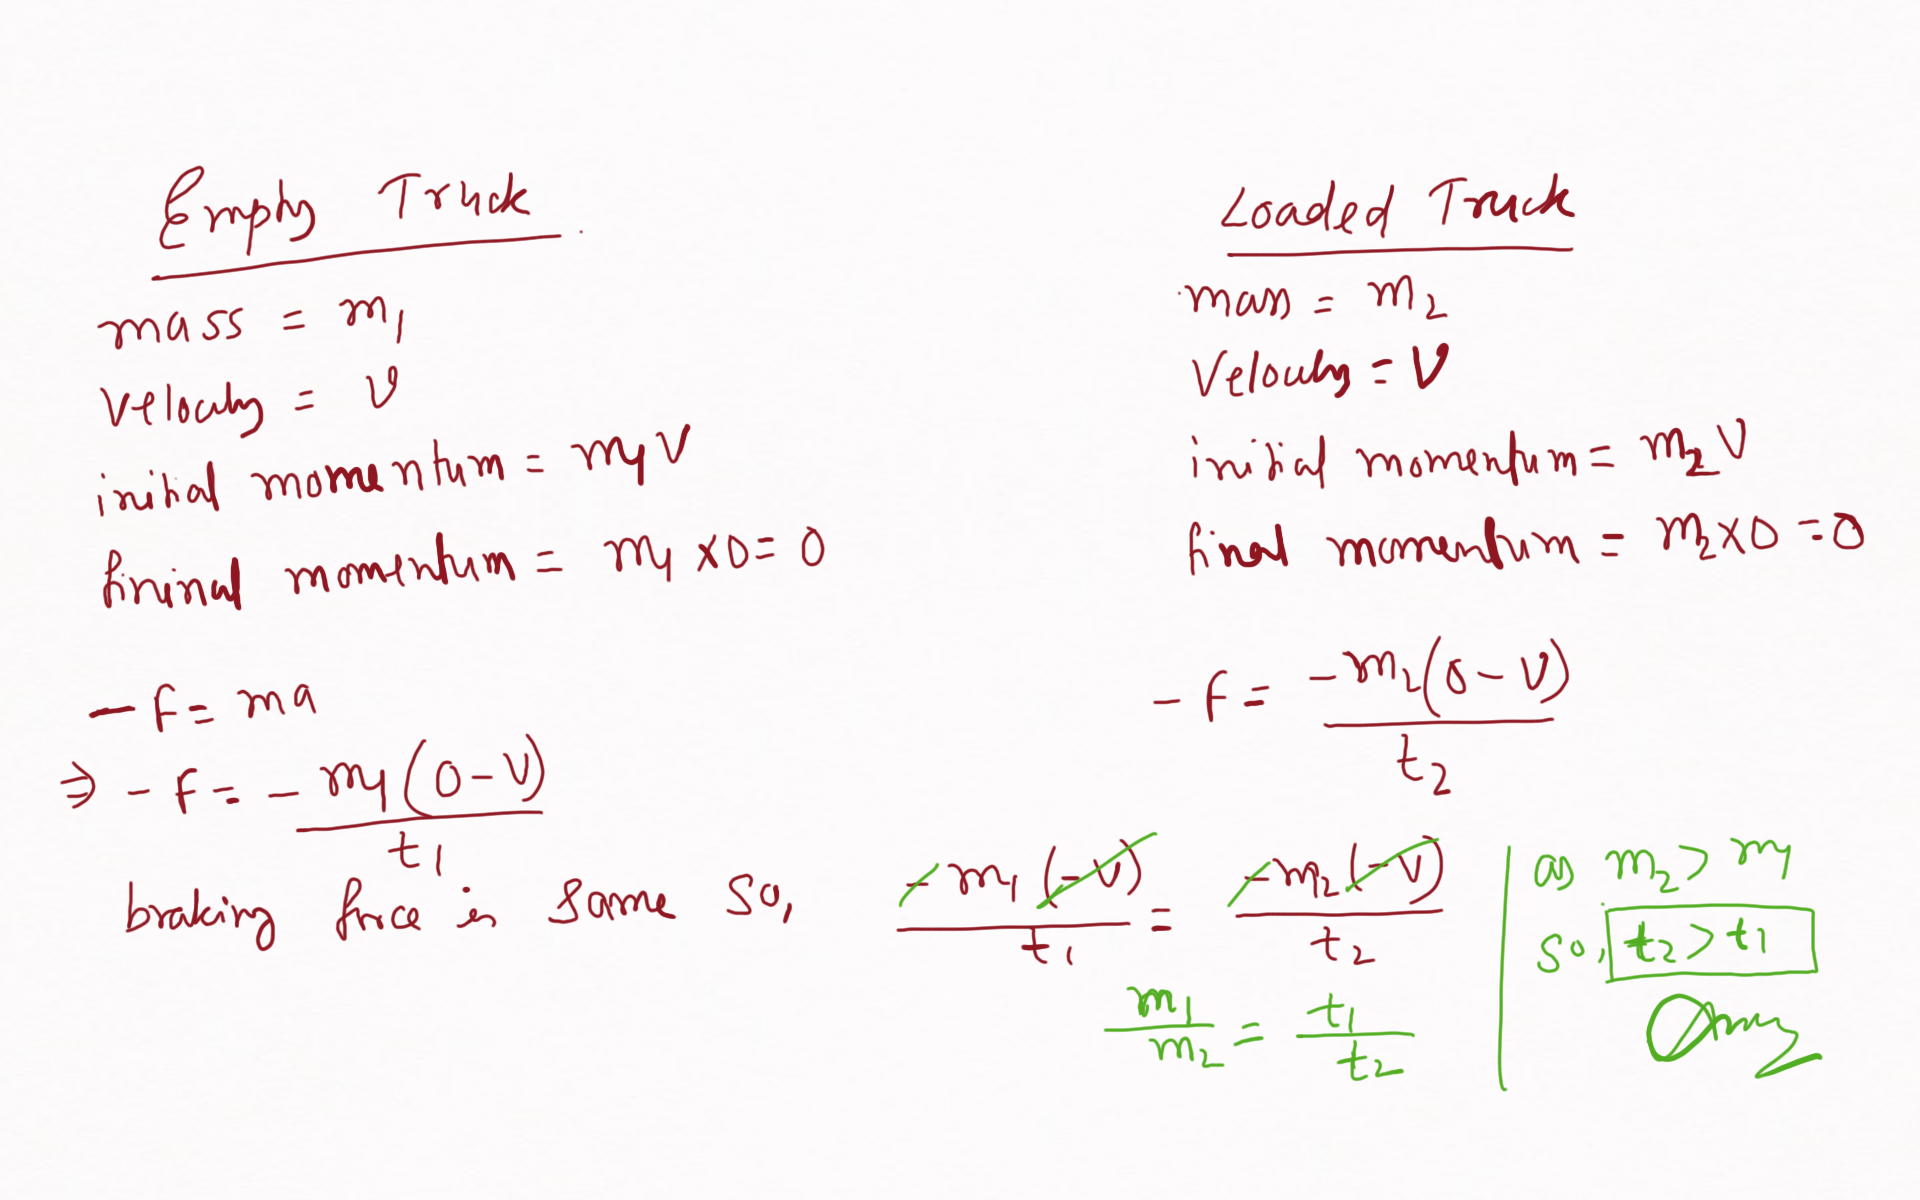 Empty Truck
mass = m₁
Velocity = v
initial momentum = m₁ V
fininal momentum = m₁ x0= 0
- F = ma
⇒ - F = - m₁ (0-V) / t₁
braking force is same so,
Loaded Truck
mass = m₂
Velocity = V
initial momentum = m₂ V
final momentum = m₂x0 =0
- F = -m₂(0-V) / t₂
- m₁ (-V) / t₁ = -m₂ (-V) / t₂
m₁ / m₂ = t₁ / t₂
as m₂ > m₁
so, t₂ > t₁